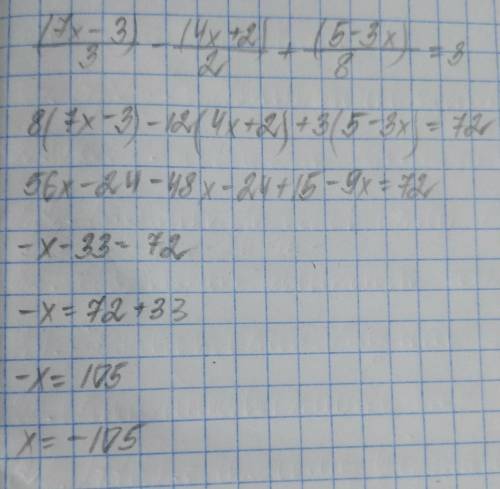 (7x-3)/3 - (4x+2)/2 + (5-3x)/8 = 3
8(7x-3)-12(4x+2)+3(5-3x)=72
56x-24-48x-24+15-9x=72
-x-33=72
-x=72+33
-x=105
x=-105